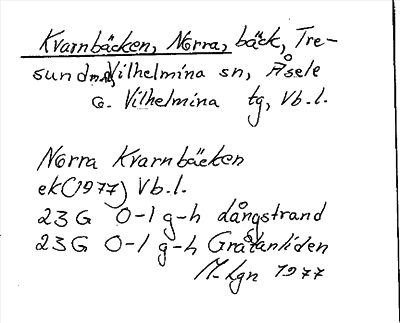 Kvarnbäcken, Norra, bäck, Tre-
sund Vilhelmina sn, Åsele
o. Vilhelmina tg, Vb.l.
Norra Kvarnbäcken
ek(1977) Vb.l.
23 G 0-1 g-h Långstrand
23 G 0-1 g-h Gråtanliden
M-lgn 1977